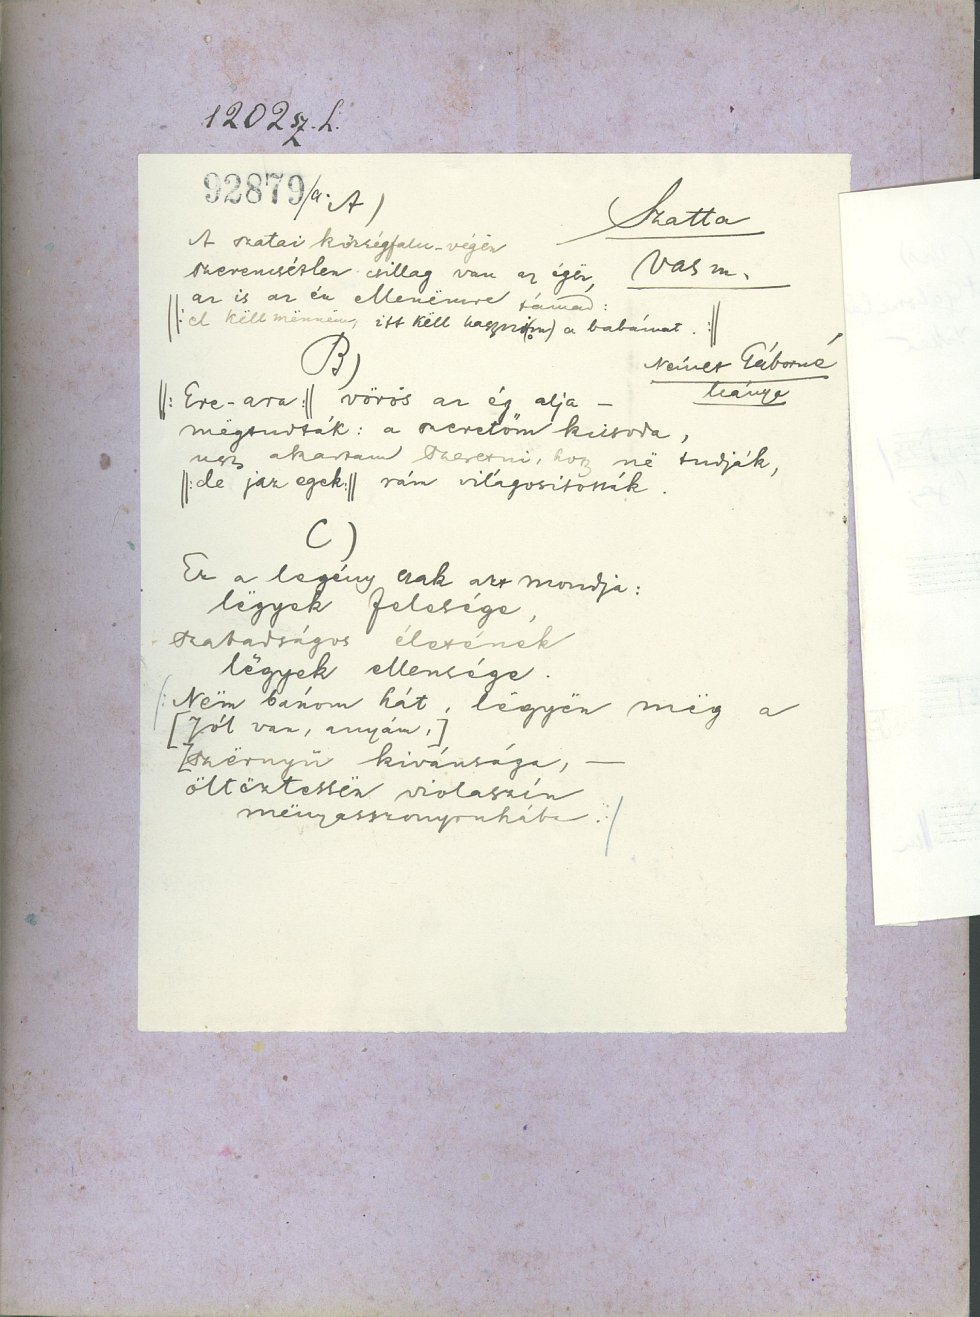 1202 sz. L.
92879/a. A)
Szatta
Vas m.
A szatai községfalu-végén
szerencsétlen csillag van az égën,
az is az én ellenëmre támad:
‖: el këll mënnëm, itt këll hagyni(om) a babámat. :‖
Német Gáborné
leánya
B)
‖: Erre-arra :‖ vörös az ég alja –
mëgtudták: a szeretőm kicsoda,
úgy akartam szeretni, hogy në tudják,
‖: de jaz egek :‖ rám világosították.
C)
Ez a legény csak azt mondja:
lëgyek felesége,
szabadságos életének
lëgyek ellensége.
: Nëm bánom hát, lëgyën mëg a
[Jól van, anyám,]
szërnyü kivánsága, —
öltöztessën violaszín
mënyasszonyruhába. :